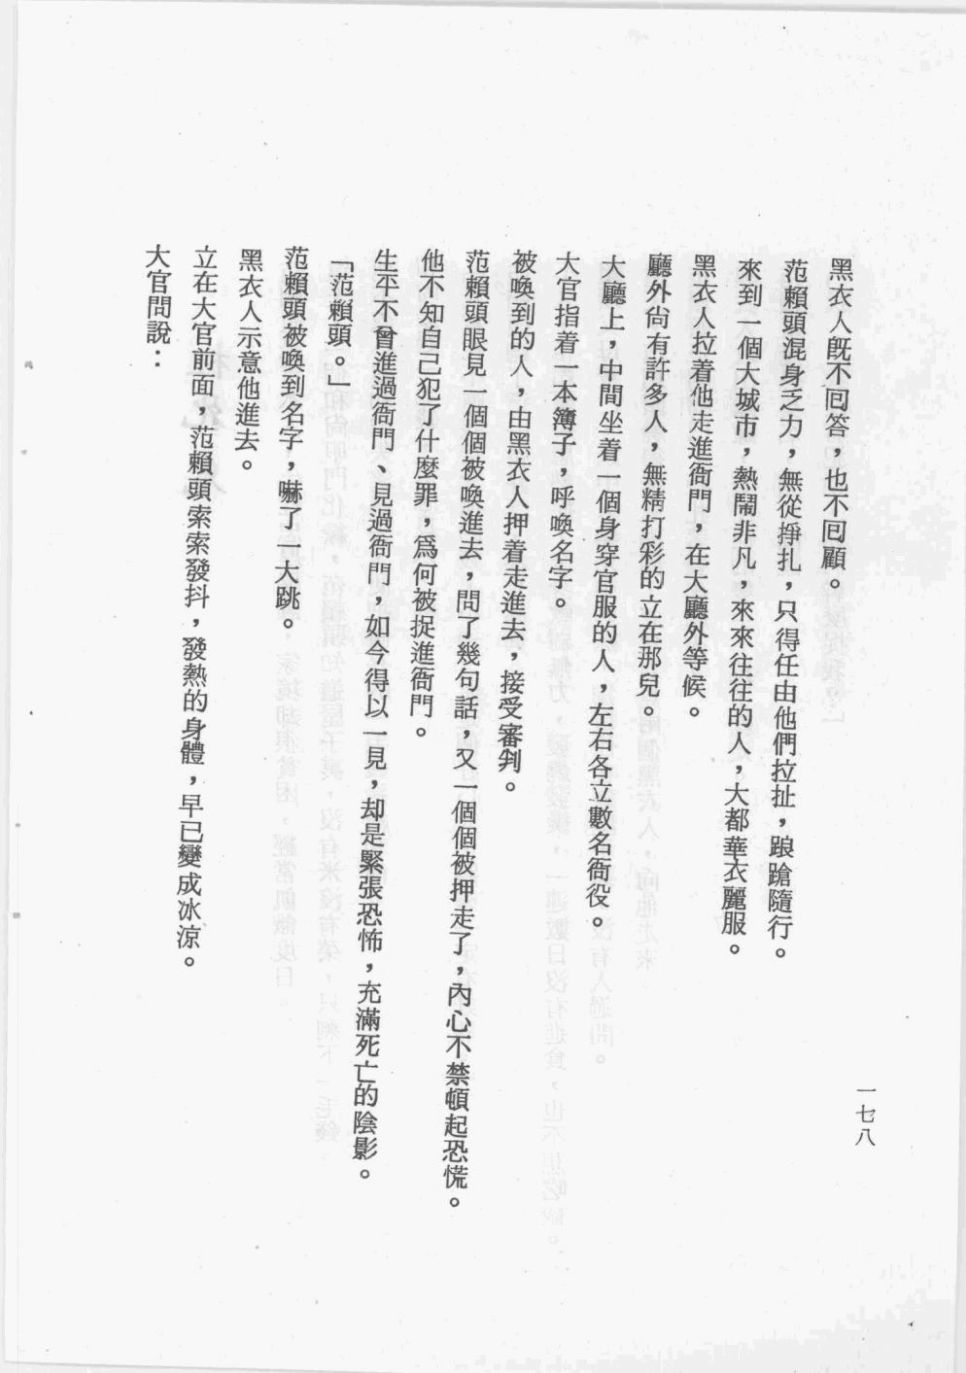 黑衣人旣不回答，也不回顧。
范賴頭混身乏力，無從掙扎，只得任由他們拉扯，踉蹌隨行。
來到一個大城市，熱鬧非凡，來來往往的人，大都華衣麗服。
黑衣人拉着他走進衙門，在大廳外等候。
廳外尙有許多人，無精打彩的立在那兒。
大廳上，中間坐着一個身穿官服的人，左右各立數名衙役。
大官指着一本簿子，呼喚名字。
被喚到的人，由黑衣人押着走進去，接受審判。
范賴頭眼見一個個被喚進去，問了幾句話，又一個個被押走了，內心不禁頓起恐慌。
他不知自己犯了什麼罪，爲何被捉進衙門。
生平不曾進過衙門、見過衙門，如今得以一見，却是緊張恐怖，充滿死亡的陰影。
「范賴頭。」
范賴頭被喚到名字，嚇了一大跳。
黑衣人示意他進去。
立在大官前面，范賴頭索索發抖，發熱的身體，早已變成冰涼。
大官問說：
一七八